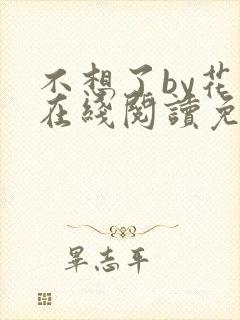 不想了by花
在綫閱讀免
畢志平